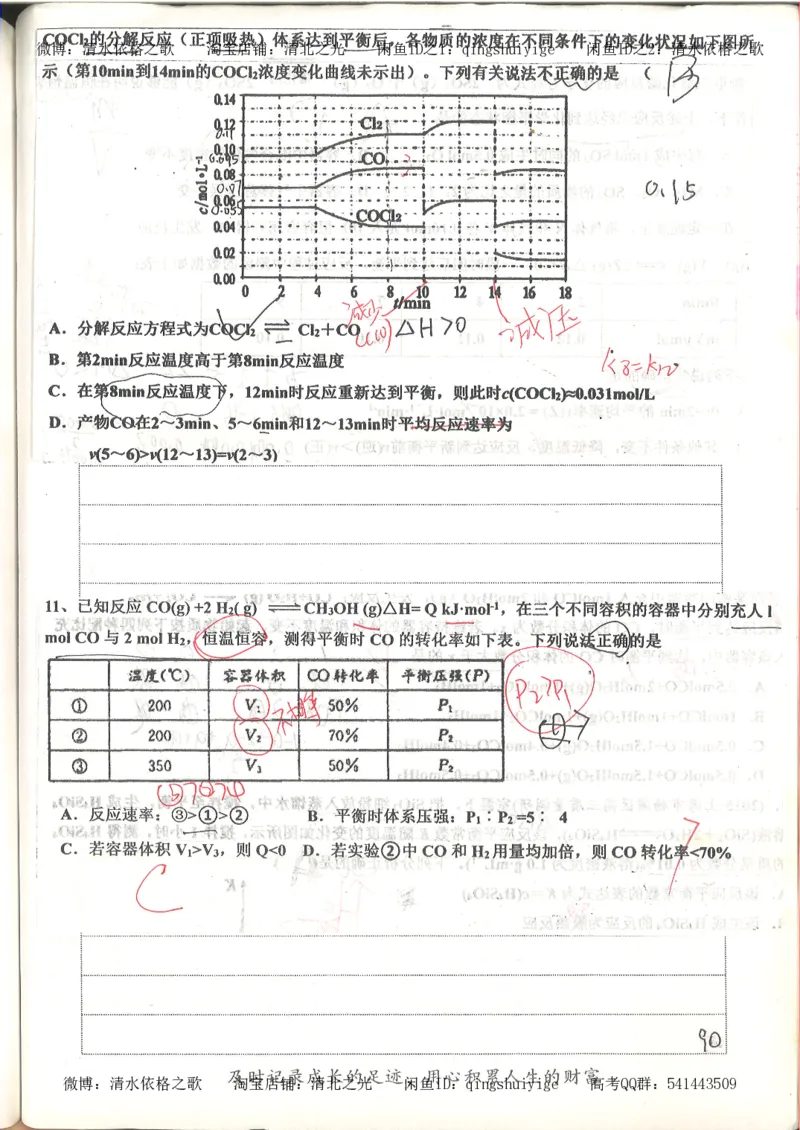 COCl₂的分解反应（正项吸热）体系达到平衡后，各物质的浓度在不同条件下的变化状况如下图所
微博：清水依格之歌 淘宝店铺：清北之光 闲鱼ID之1：qingshuiyige 闲鱼ID之2：清水依格之歌
示（第10min到14min的COCl₂浓度变化曲线未示出）。下列有关说法不正确的是 （ B
0.14
0.12
0.11
0.10
0.095
0.08
0.07
0.06
0.055
0.04
0.02
0.00
c/mol•L⁻¹
Cl₂
CO
COCl₂
0 2 4 6 8 10 12 14 16 18
t/min
0.15
减少
(CO)
减压
A．分解反应方程式为COCl₂ ⇌ Cl₂＋CO △H>0
B．第2min反应温度高于第8min反应温度
K8=K12
C．在第8min反应温度下，12min时反应重新达到平衡，则此时c(COCl₂)≈0.031mol/L
D．产物CO在2～3min、5～6min和12～13min时平均反应速率为
v(5～6)>v(12～13)=v(2～3)
11、已知反应 CO(g) +2 H₂( g) ⇌ CH₃OH (g)△H= Q kJ·mol⁻¹，在三个不同容积的容器中分别充人 l
mol CO 与 2 mol H₂，恒温恒容，测得平衡时 CO 的转化率如下表。下列说法正确的是
温度(℃) 容器体积 CO转化率 平衡压强(P)
① 200 V₁ 50% P₁
② 200 V₂ 70% P₂
③ 350 V₃ 50% P₂
P₂>P₁
A．反应速率：③>①>② B．平衡时体系压强：P₁∶P₂ =5∶ 4
C．若容器体积 V₁>V₃，则 Q<0 D．若实验②中 CO 和 H₂ 用量均加倍，则 CO 转化率<70%
C
90
及时记录成长的足迹 用心积累人生的财富
微博：清水依格之歌 淘宝店铺：清北之光 闲鱼ID：qingshuiyige 高考QQ群：541443509